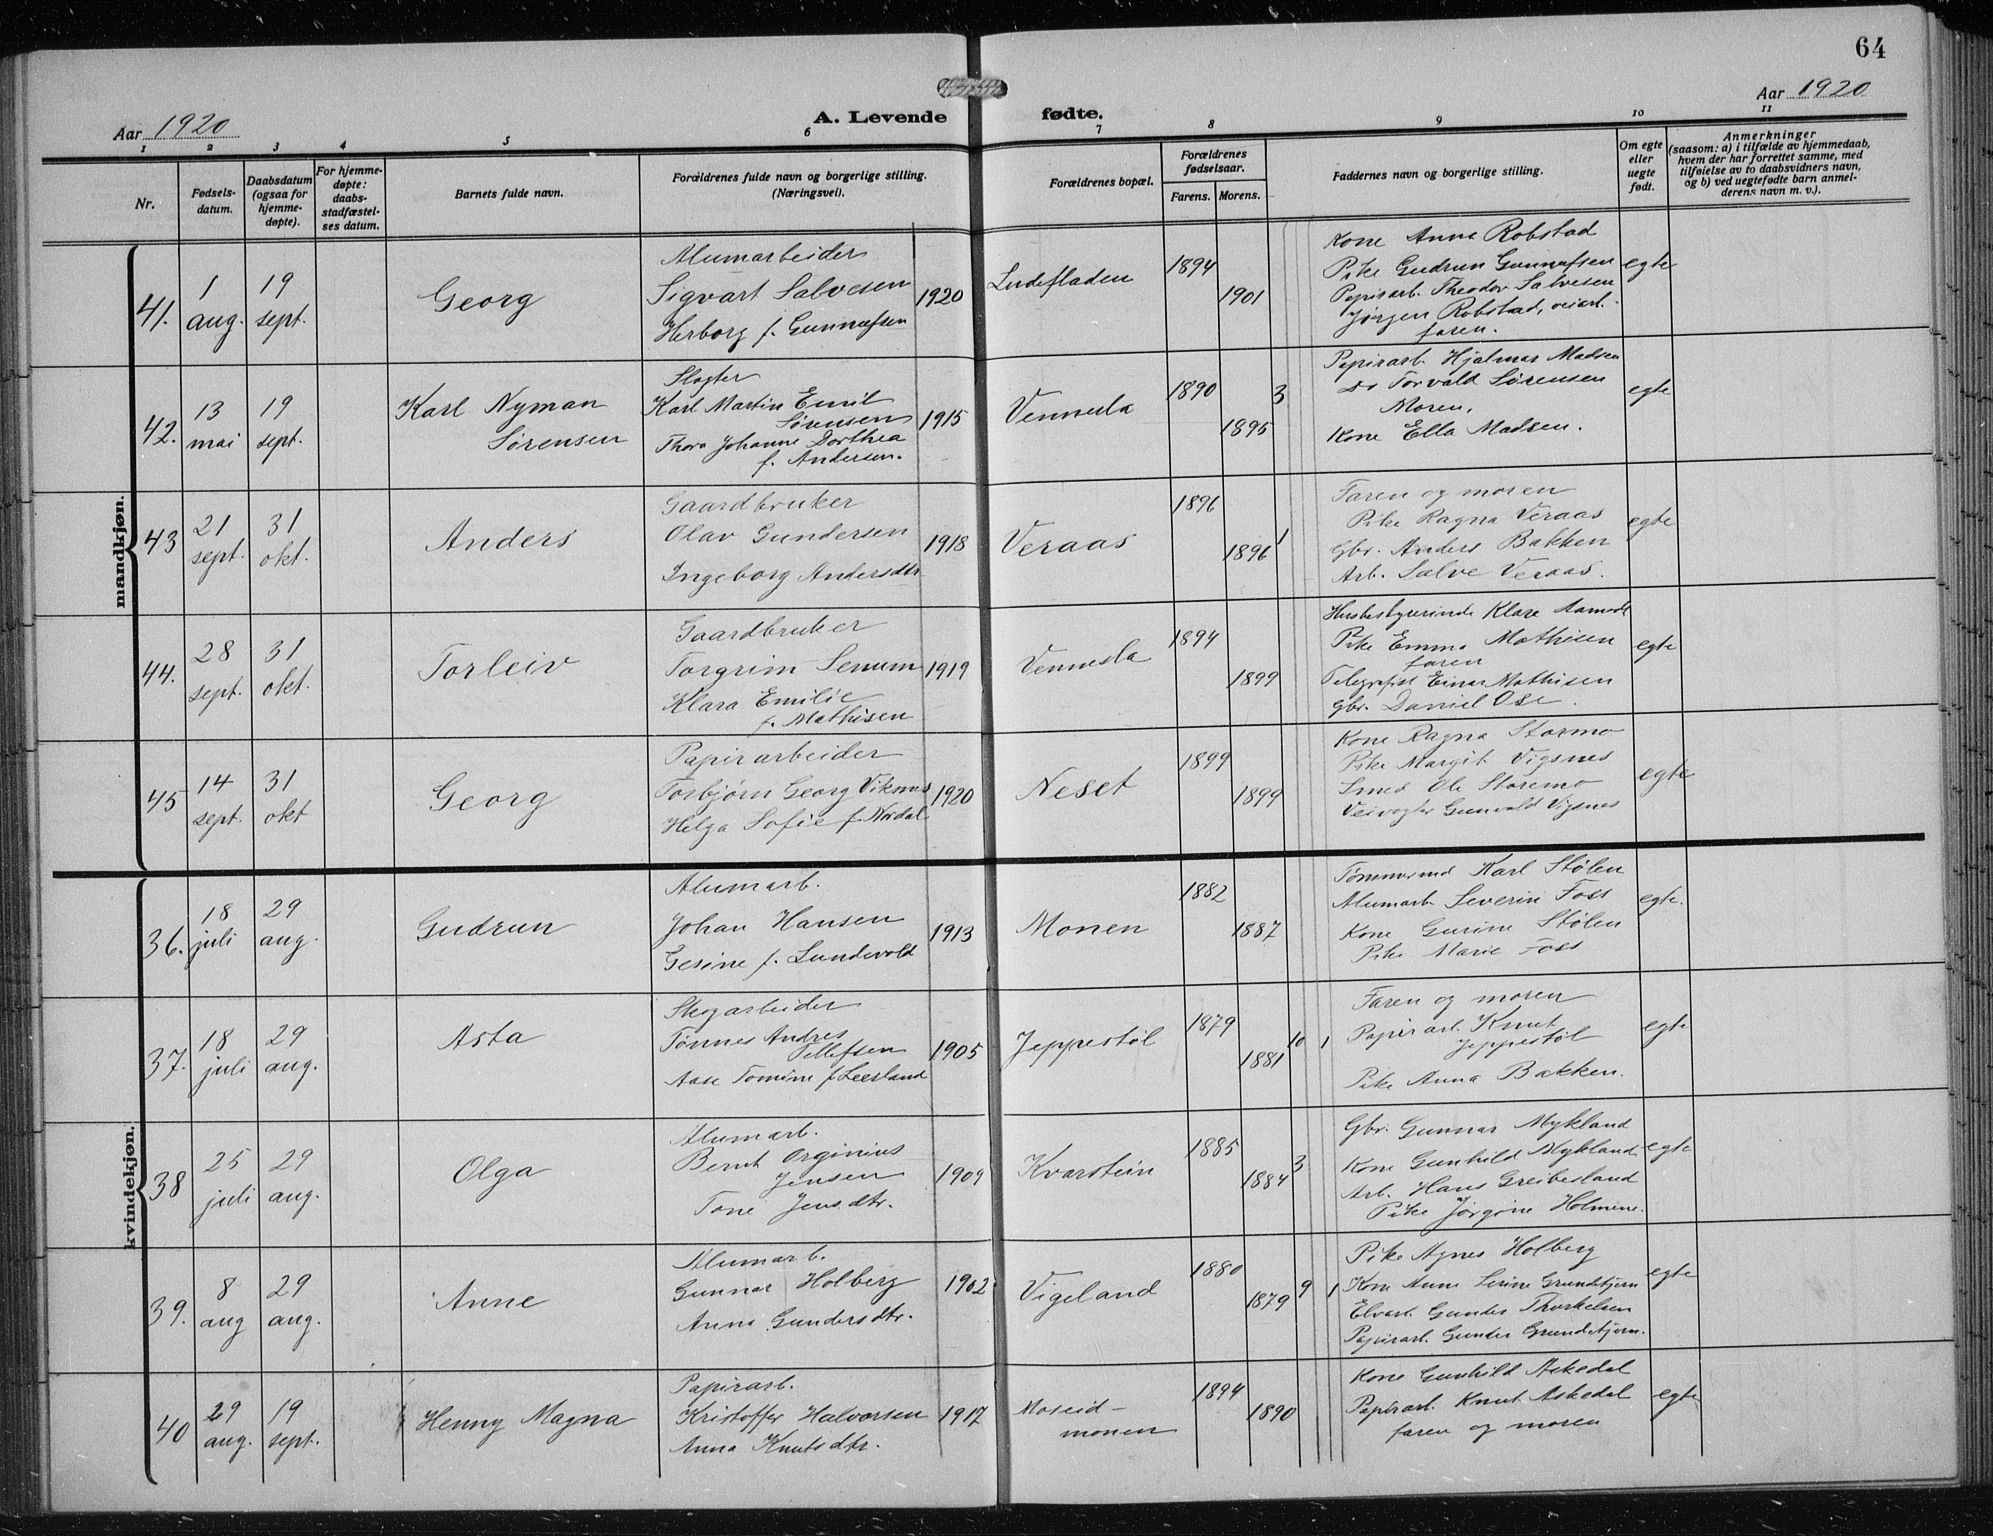 64
Aar 1920
Aar 1920
A. Levende fødte.
1 2 3 4 5 6 7 8 9 10 11
Nr.
Fødsels-
datum.
Daabsdatum
(ogsaa for
hjemme-
døpte).
For hjemme-
døpte:
daabs-
stadfæstel-
ses datum.
Barnets fulde navn.
Forældrenes fulde navn og borgerlige stilling.
(Næringsvei).
Forældrenes bopæl.
Forældrenes
fødselsaar.
Farens. Morens.
Faddernes navn og borgerlige stilling.
Om egte
eller
uegte
født.
Anmerkninger
(saasom: a) i tilfælde av hjemmedaab,
hvem der har forrettet samme, med
tilføielse av to daabsvidners navn,
og b) ved uegtefødte barn anmel-
derens navn m. v.).
mandkjøn.
41.
1
aug.
19
sept.
Georg
Alumarbeider
Sigvart Salvesen
Herborg f. Gunnufsen
1920
1894
1901
Kone Anna Robstad
Pike Gudrun Gunnufsen
Papirarb. Theodor Salvesen
Jørgen Robstad, veiarb.
faren.
egte
42.
13
mai
19
sept.
Karl Nyman
Sørensen
Slagter
Karl Martin Emil
Sørensen
Thora Johanne Dorthea
f. Andersen.
1915
Vennesla
1890
1895
3
Papirarb. Hjalmar Madsen
Do Torvald Sørensen
Moren.
Kone Ella Madsen.
egte
43
21
sept.
31
okt.
Anders
Gaardbruker
Olav Gundersen
Ingeborg Andersdtr.
1918
Veraas
1896
1896
1
Faren og moren
Pike Ragna Veraas
Gbr. Anders Bakken
Arb. Salve Veraas.
egte
44.
28
sept.
31
okt.
Torleiv
Gaardbruker
Torgrim Senum
Klara Emilie
f. Mathisen
1919
Vennesla
1894
1899
Husbestyrerinde Klare Aamodt
Pike Emma Mathisen
faren
Telegrafist Einar Mathisen
Gbr. Daniel Ose.
egte
45
14
sept.
31
okt
Georg
Papirarbeider
Torbjørn Georg Viknes
Helga Sofie f. Nordal
1920
Neset
1899
1899
Kone Ragna Stormo
Pike Margit Vigsnes
Smed Ole Storemo
Veivogter Gunvald Vigsnes
egte
kvindekjøn.
36.
18
juli
29
aug.
Gudrun
Alumarb.
Johan Hansen
Gesine f. Lundevold
1913
Monen
1882
1887
Tømmermd Karl Stølen
Alumarb. Severin Foss
Kone Gurine Stølen
Pike Marie Foss
egte.
37.
18
juli
29
aug.
Asta
Skogarbeider
Tønnes Andres
Tellefsen
Aase Tomine f. Leesland
1905
Jeppestøl
1879
1881
10 1
Faren og moren
Papirarb. Knut
Jeppestøl
Pike Anna Bakken.
egte
38
25
juli
29
aug.
Olga
Alumarb.
Bernt Orginius
Jensen
Tone Jensdtr.
1909
Kvarstein
1885
1884
3
Gbr. Gunnar Mykland
Kone Gunhild Mykland.
Arb. Hans Greibesland
Pike Jørgine Holmene.
egte
39.
8
aug
29
aug.
Anne
Alumarb.
Gunnar Holberg
Anna Gundersdtr.
1902
Vigeland
1880
1879
9 1
Pike Agnes Holberg
Kone Anne Serine Grundetjern
Elvarb. Gunder Thorkelsen
Papirarb. Gunder Grundetjern.
egte
40
29
aug.
19
sept.
Henny Magna
Papirarb.
Kristoffer Halvorsen
Anna Knutsdtr.
1917
Moseid-
monen
1894
1890
Kone Gunhild Askedal
Papirarb. Knut Askedal
faren og moren
egte